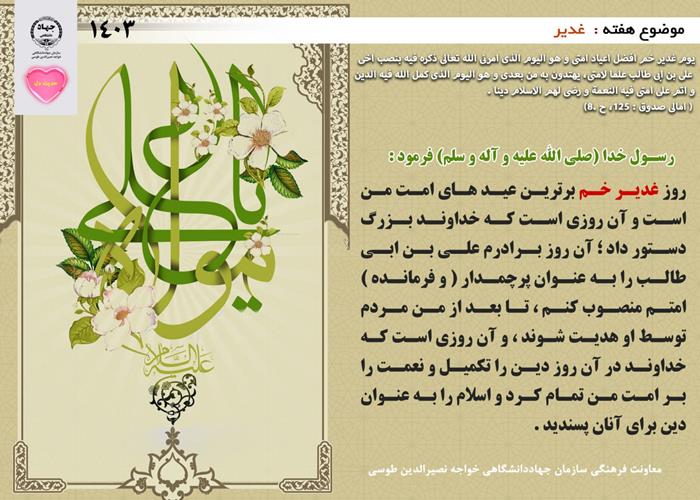 موضوع هفته : غدیر
۱۴۰۳
جهاد
دانشگاهی
سازمان جهاددانشگاهی
خواجه نصیرالدین طوسی
حدیث دل
یوم غدیر خم افضل اعیاد امتی و هو الیوم الذی امرنی الله تعالی ذکره فیه بنصب اخی
علی بن ابی طالب علما لامتی، یهتدون به من بعدی و هو الیوم الذی کمل الله فیه الدین
و اتم علی امتی فیه النعمة و رضی لهم الاسلام دینا .
( امالی صدوق : 125، ح .8)
رسول خدا (صلی الله علیه و آله و سلم) فرمود :
روز غدیر خم برترین عید های امت من
است و آن روزی است که خداوند بزرگ
دستور داد ؛ آن روز برادرم علی بن ابی
طالب را به عنوان پرچمدار ( و فرمانده )
امتم منصوب کنم ، تا بعد از من مردم
توسط او هدیت شوند ، و آن روزی است که
خداوند در آن روز دین را تکمیل و نعمت را
بر امت من تمام کرد و اسلام را به عنوان
دین برای آنان پسندید .
معاونت فرهنگی سازمان جهاددانشگاهی خواجه نصیرالدین طوسی
یا علی
علیه السلام